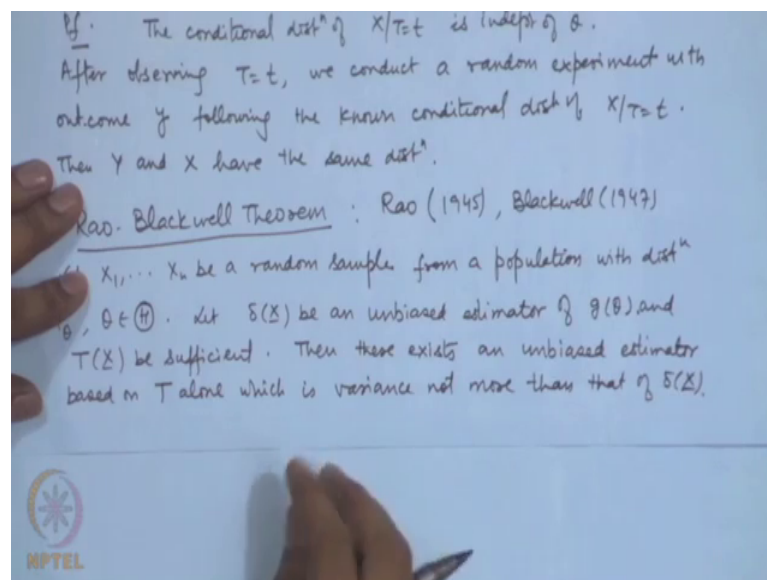 Pf. The conditional distⁿ of X/T=t is indept of θ.
After observing T=t, we conduct a random experiment with
outcome y following the known conditional dist of X/T=t.
Then Y and X have the same distⁿ.
Rao-Blackwell Theorem : Rao (1945), Blackwell (1947)
X₁, ... Xₙ be a random sample from a population with distⁿ
θ, θ ∈ Ⓗ. Let δ(X) be an unbiased estimator of g(θ) and
T(X) be sufficient. Then there exists an unbiased estimator
based on T alone which is variance not more than that of δ(X).
NPTEL